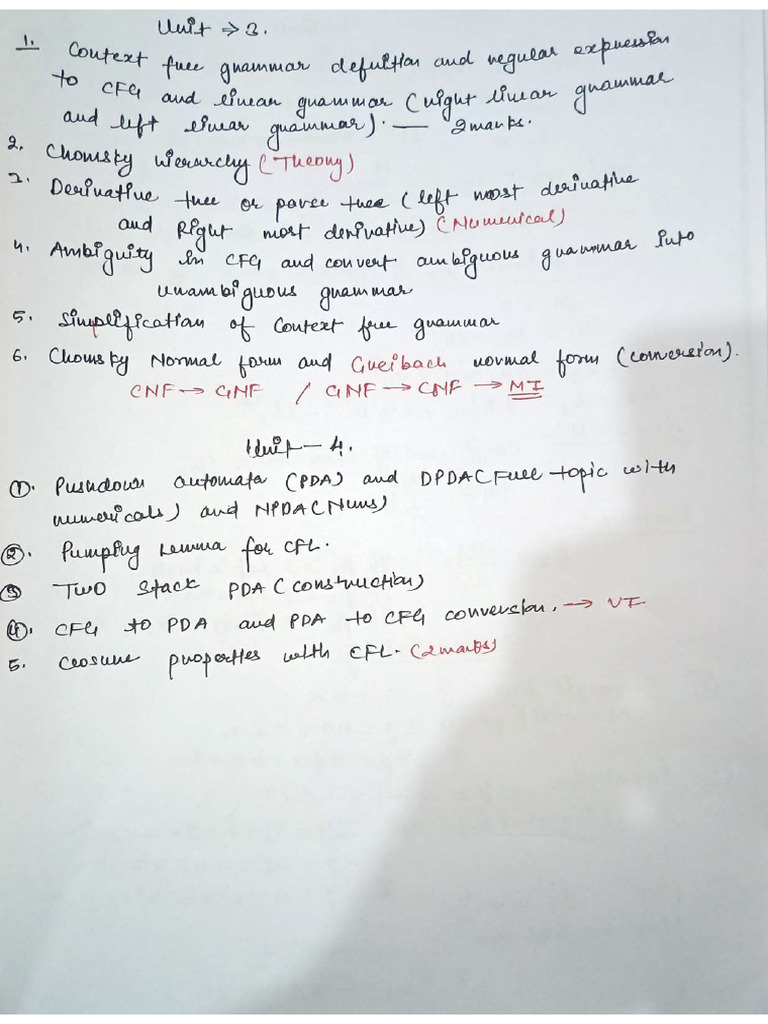 Unit ⇒ 3.
1. Context free grammar definition and regular expression
to CFG and linear grammar (right linear grammar
and left linear grammar). — 2marks.
2. Chomsky hierarchy (Theory)
3. Derivative tree or parse tree (left most derivative
and Right most derivative) (Numerical)
4. Ambiguity in CFG and convert ambiguous grammar into
unambiguous grammar
5. Simplification of Context free grammar
6. Chomsky Normal form and Greibach normal form (conversion).
CNF → GNF / GNF → CNF → MI
Unit – 4.
①. Pushdown automata (PDA) and DPDA (Full topic with
numericals) and NPDA (Nums)
②. Pumping Lemma for CFL.
③ Two stack PDA (construction)
④. CFG to PDA and PDA to CFG conversion. → VI
5. closure properties with CFL. (2marks)